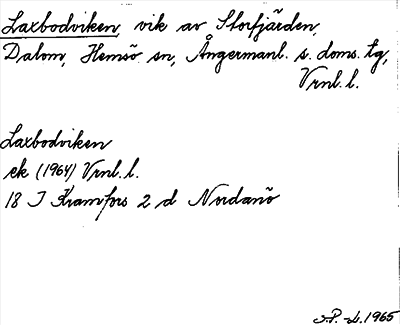 Laxbodviken, vik av Storfjärden,
Dalom, Hemsö sn, Ångermanl. s. doms. tg,
Vrnl. l.
Laxbodviken
ek (1964) Vrnl. l.
18 I Kramfors 2 d Nordanö
1965